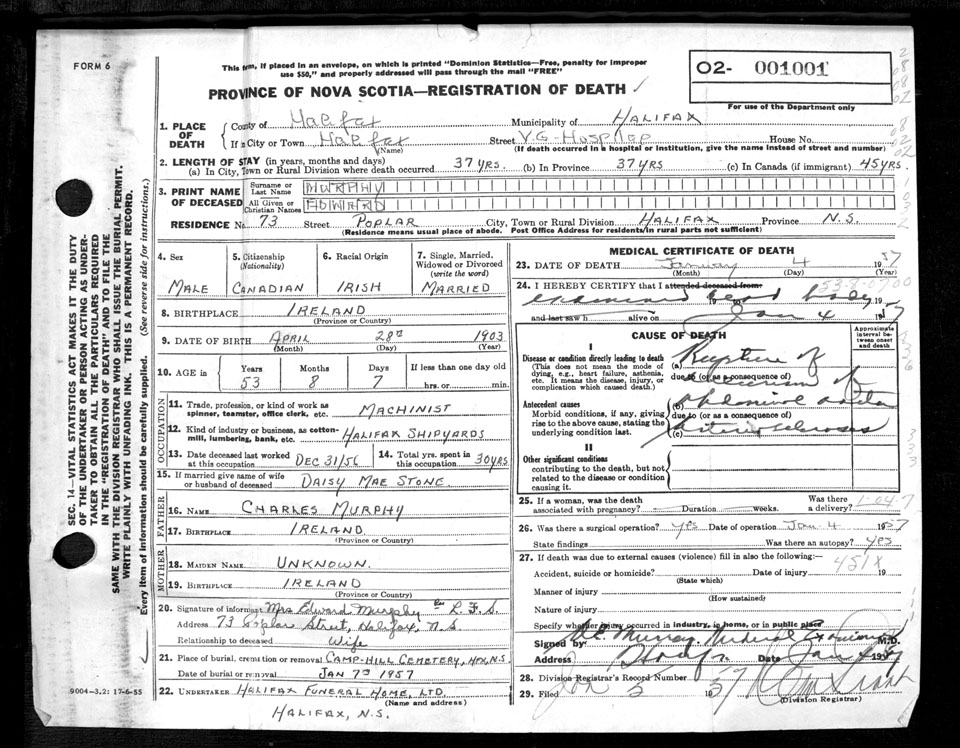 FORM 6
This form, if placed in an envelope, on which is printed "Dominion Statistics—Free, penalty for improper
use $50," and properly addressed will pass through the mail "FREE"
PROVINCE OF NOVA SCOTIA—REGISTRATION OF DEATH
O2- 001001
For use of the Department only
1. PLACE OF DEATH
County of Halifax Municipality of HALIFAX
If in City or Town Halifax Street V.G. HOSPITAL House No.
(Name) (If death occurred in a hospital or institution, give the name instead of street and number)
2. LENGTH OF STAY (in years, months and days)
(a) In City, Town or Rural Division where death occurred 37 YRS. (b) In Province 37 YRS. (c) In Canada (if immigrant) 45 YRS.
3. PRINT NAME OF DECEASED
Surname or Last Name MURPHY
All Given or Christian Names EDWARD
RESIDENCE No. 73 Street POPLAR City, Town or Rural Division HALIFAX Province N.S.
(Residence means usual place of abode. Post Office Address for residents in rural parts not sufficient)
4. Sex
MALE
5. Citizenship (Nationality)
CANADIAN
6. Racial Origin
IRISH
7. Single, Married, Widowed or Divorced (write the word)
MARRIED
8. BIRTHPLACE IRELAND
(Province or Country)
9. DATE OF BIRTH APRIL 28th 1903
(Month) (Day) (Year)
10. AGE in Years Months Days If less than one day old
53 8 7 hrs. or min.
OCCUPATION
11. Trade, profession, or kind of work as spinner, teamster, office clerk, etc. MACHINIST
12. Kind of industry or business, as cotton-mill, lumbering, bank, etc. HALIFAX SHIPYARDS
13. Date deceased last worked at this occupation DEC 31/56
14. Total yrs. spent in this occupation 30 YRS
15. If married give name of wife or husband of deceased DAISY MAE STONE
FATHER
16. NAME CHARLES MURPHY
17. BIRTHPLACE IRELAND
(Province or Country)
MOTHER
18. MAIDEN NAME UNKNOWN.
19. BIRTHPLACE IRELAND
(Province or Country)
20. Signature of informant Mrs Edward Murphy Per L.F.S.
Address 73 Poplar Street, Halifax, N.S
Relationship to deceased Wife
21. Place of burial, cremation or removal CAMP-HILL CEMETERY, HFX, N.S.
Date of burial or removal JAN 7th 1957
22. UNDERTAKER HALIFAX FUNERAL HOME, LTD.
(Name and address)
HALIFAX, N.S.
9004-3.2: 17-6-55
MEDICAL CERTIFICATE OF DEATH
23. DATE OF DEATH January 4 1957
(Month) (Day) (Year)
24. I HEREBY CERTIFY that I attended deceased from:
examined dead body 19
and last saw h alive on Jan 4 1957
CAUSE OF DEATH
Approximate interval between onset and death
I
Disease or condition directly leading to death
(This does not mean the mode of dying, e.g., heart failure, asthenia, etc. It means the disease, injury, or complication which caused death.)
(a) Rupture of
due to (or as a consequence of)
aneurism of
Antecedent causes
Morbid conditions, if any, giving rise to the above cause, stating the underlying condition last.
(b) abdominal aorta
due to (or as a consequence of)
(c) Arteriosclerosis
II
Other significant conditions
contributing to the death, but not related to the disease or condition causing it.
25. If a woman, was the death associated with pregnancy? Duration weeks. Was there a delivery?
26. Was there surgical operation? yes Date of operation Jan 4 1957
State findings Was there an autopsy? yes
27. If death was due to external causes (violence) fill in also the following:—
451X
Accident, suicide or homicide? Date of injury 19
(State which)
Manner of injury
(How sustained)
Nature of injury
Specify whether injury occurred in industry, in home, or in public place
Signed by Murray, Medical Examiner M.D.
Address Date Jan 19
28. Division Registrar's Record Number
29. Filed Jan 5 1957
(Division Registrar)
SEC. 14—VITAL STATISTICS ACT MAKES IT THE DUTY
OF THE UNDERTAKER OR PERSON ACTING AS UNDER-
TAKER TO OBTAIN ALL THE PARTICULARS REQUIRED
IN THE "REGISTRATION OF DEATH" AND TO FILE THE
SAME WITH THE DIVISION REGISTRAR WHO SHALL ISSUE THE BURIAL PERMIT.
WRITE PLAINLY WITH UNFADING INK. THIS IS A PERMANENT RECORD.
Every item of information should be carefully supplied. (See reverse side for instructions.)